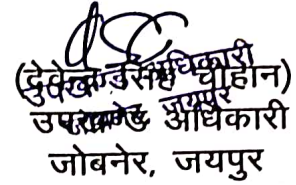 (देवेन्द्र सिंह चौहान)
उपखण्ड अधिकारी
जोबनेर, जयपुर